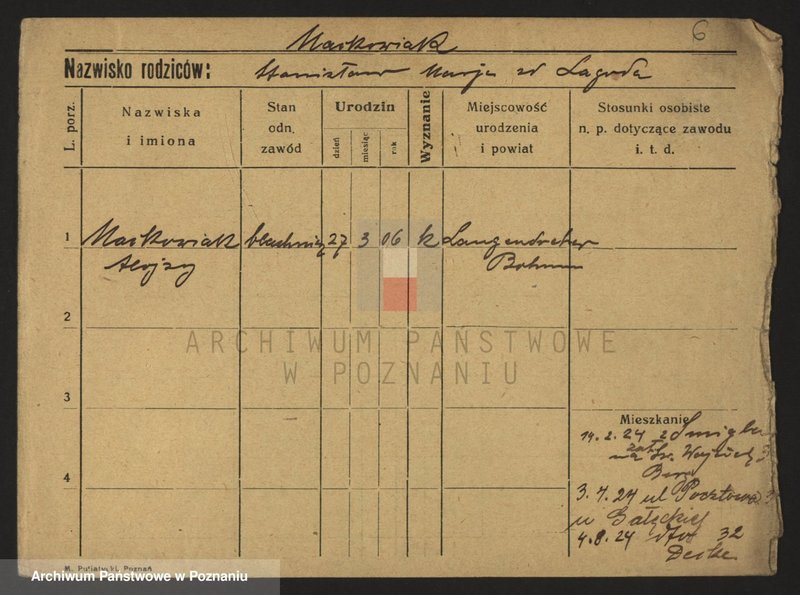 6
Maćkowiak
Nazwisko rodziców: Stanisław Marja zd Lagoda
L. porz.
Nazwiska
i imiona
Stan
odn.
zawód
Urodzin
dzień
miesiąc
rok
Wyznanie
Miejscowość
urodzenia
i powiat
Stosunki osobiste
n. p. dotyczące zawodu
i. t. d.
1 Maćkowiak blacharz 27 3 06 k Langendreer
Alojzy Bohum
2
ARCHIWUM PAŃSTWOWE
W POZNANIU
3
Mieszkanie
14. 2. 24 z Śmigla
na Św. Wojciech 3
4
3. 4. 24 ul Pocztowa
u Gałęckiej
4. 8. 24 32
M. Putiatycki, Poznań
Archiwum Państwowe w Poznaniu